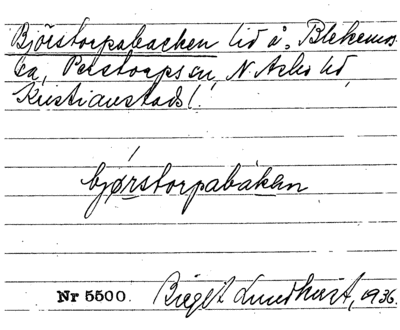 Björstorpabacken vid å. Blekemos-
sa, Perstorps sn, N. Åsbo hd,
Kristianstads l.
bjørstorpabákan
Nr 5500. Birgit Lundkvist, 1936.